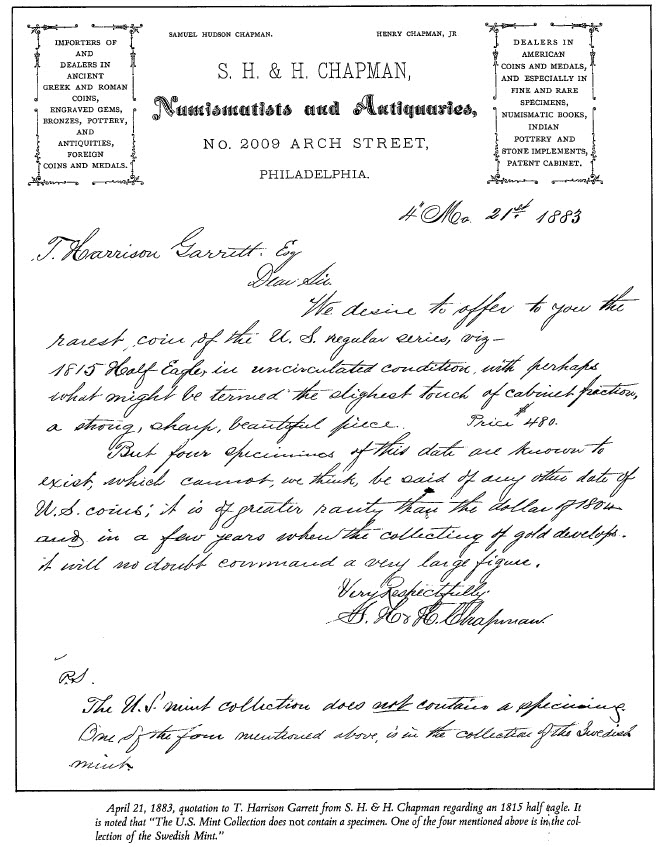 SAMUEL HUDSON CHAPMAN.
HENRY CHAPMAN, JR
IMPORTERS OF
AND
DEALERS IN
ANCIENT
GREEK AND ROMAN
COINS,
ENGRAVED GEMS,
BRONZES, POTTERY,
AND
ANTIQUITIES,
FOREIGN
COINS AND MEDALS.
S. H. & H. CHAPMAN,
Numismatists and Antiquaries,
No. 2009 ARCH STREET,
PHILADELPHIA.
DEALERS IN
AMERICAN
COINS AND MEDALS,
AND ESPECIALLY IN
FINE AND RARE
SPECIMENS,
NUMISMATIC BOOKS,
INDIAN
POTTERY AND
STONE IMPLEMENTS,
PATENT CABINET.
4" Mo. 21st. 1883
T. Harrison Garrett. Esq
Dear Sir.
We desire to offer to you the
rarest coin of the U.S. regular series, viz—
1815 Half Eagle, in uncirculated condition, with perhaps
what might be termed the slighest touch of cabinet friction,
a strong, sharp, beautiful piece. Price $480.
But four specimens of this date are known to
exist, which cannot, we think, be said of any other date of
U.S. coins; it is of greater rarity than the dollar of 1804
and in a few years when the collecting of gold develops.
it will no doubt command a very large figure.
Very Respectfully
S. H & H. Chapman.
P.S.
The U.S. mint collection does not contain a specimine.
One of the four mentioned above, is in the collection of the Swedish
mint.
April 21, 1883, quotation to T. Harrison Garrett from S. H. & H. Chapman regarding an 1815 half eagle. It
is noted that "The U.S. Mint Collection does not contain a specimen. One of the four mentioned above is in the col-
lection of the Swedish Mint."